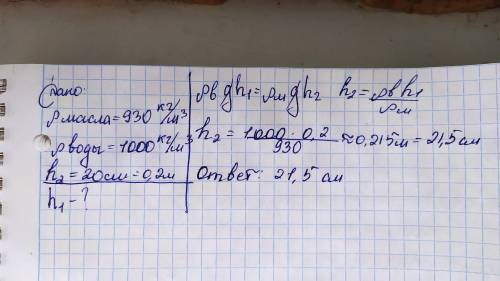 Дано:
ρ масла = 930 кг/м³
ρ воды = 1000 кг/м³
h₂ = 20см = 0,2м
h₁ - ?
ρв gh₁ = ρм gh₂ h₂ = ρв h₁ / ρм
h₂ = 1000 · 0,2 / 930 ≈ 0,215м = 21,5 см
Ответ: 21,5 см